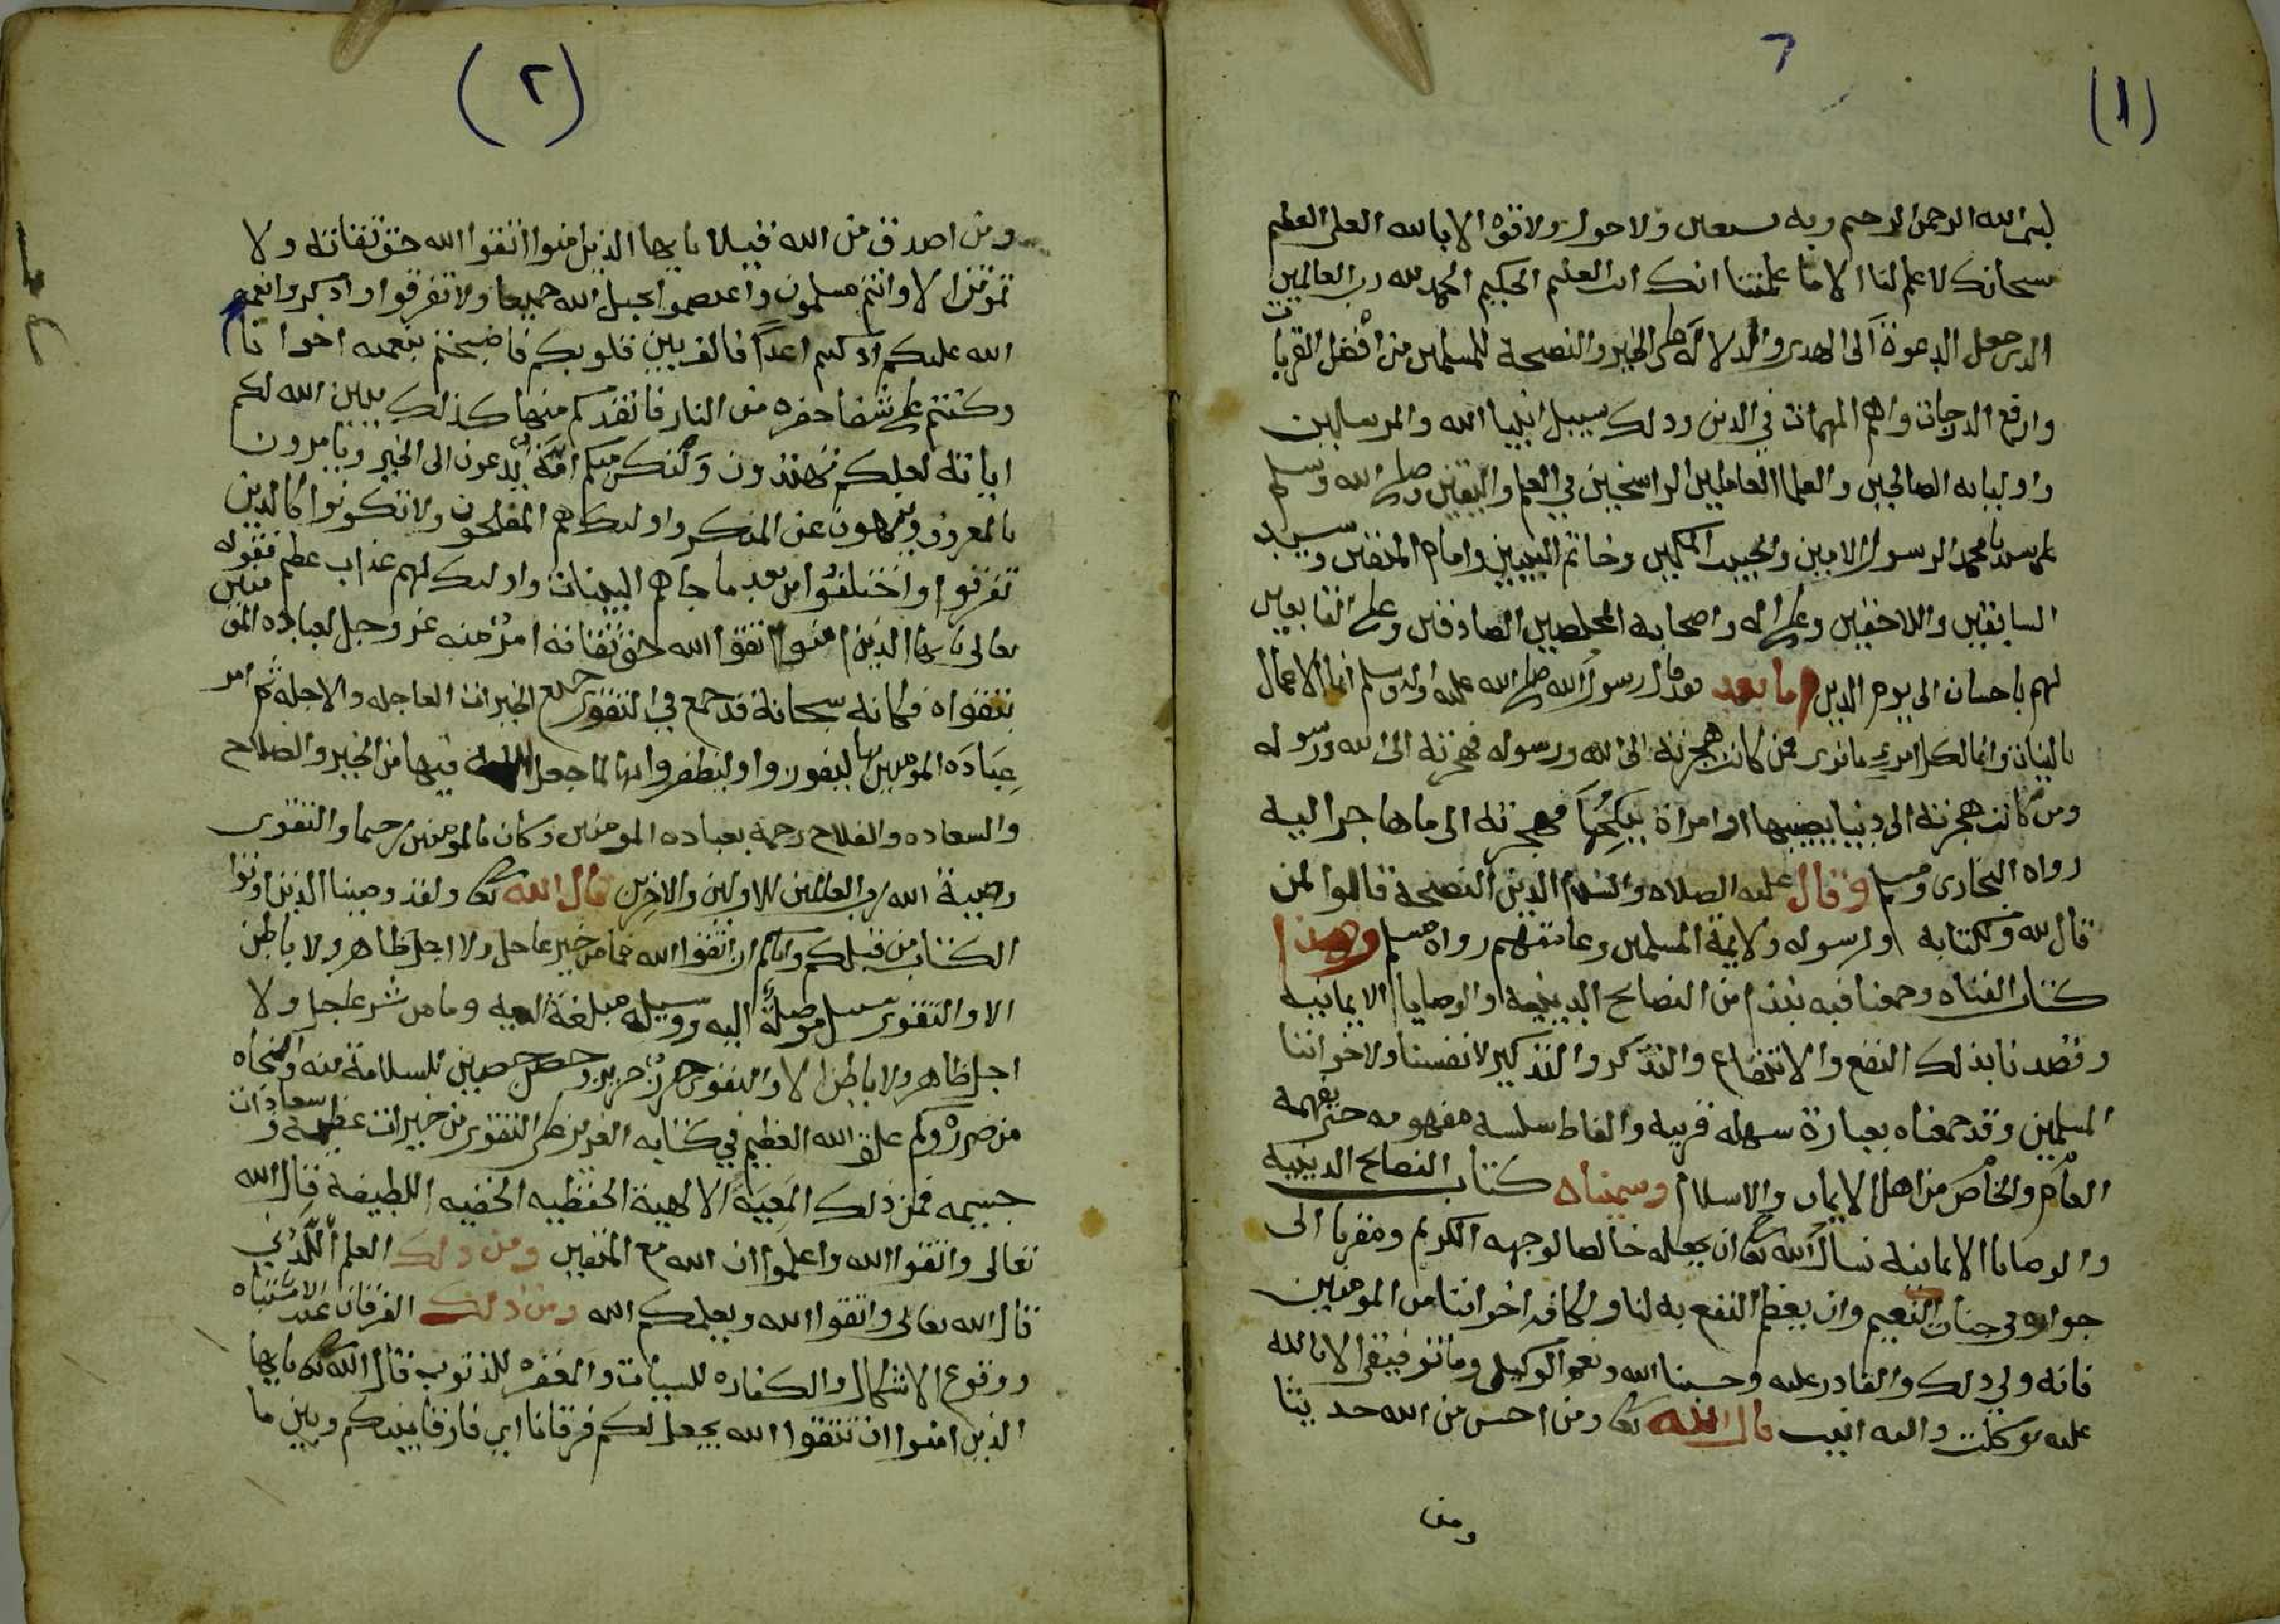 (١)
٦
بسم الله الرحمن الرحيم وبه نستعين ولا حول ولا قوة الا بالله العلى العظيم
سبحانك لا علم لنا الا ما علمتنا انك انت العليم الحكيم الحمد لله رب العالمين
الذى جعل الدعوة الى الهدى والدلالة على الخير والنصيحة للمسلمين من افضل القربات
وارفع الدرجات واهم المهمات في الدين وذلك سبيل انبيا الله والمرسلين
واوليايه الصالحين والعلما العاملين الراسخين في العلم واليقين وصلى الله وسلم
على سيدنا محمد الرسول الامين والحبيب المكين وخاتم النبيين وامام المتقين وسيد
السابقين واللاحقين وعلى اله واصحابه المخلصين الصادقين وعلى التابعين
لهم باحسان الى يوم الدين اما بعد فقد قال رسول الله صلى الله عليه واله وسلم انما الاعمال
بالنيات وانما لكل امرئ ما نوى فمن كانت هجرته الى الله ورسوله فهجرته الى الله ورسوله
ومن كانت هجرته الى دنيا يصيبها او امراة ينكحها فهجرته الى ما هاجر اليه
رواه البخارى ومسلم وقال عليه الصلاه والسلام الدين النصيحة قالوا لمن
قال لله ولكتابه ولرسوله ولايمة المسلمين وعامتهم رواه مسلم وهذا
كتاب الفناه وجمعنا فيه نبذا من النصائح الدينية والوصايا الايمانيه
وقصدنا بذلك النفع والانتفاع والتذكر والتذكير لانفسنا ولاخواننا
المسلمين وقد جمعناه بعبارة سهله قريبه والفاظ سلسه مفهومه حتى يفهمه
العام والخاص من اهل الايمان والاسلام وسميناه كتاب النصائح الدينيه
والوصايا الايمانيه نسال الله تعا ان يجعله خالصا لوجهه الكريم ومقربا الى
جواره فى جنات النعيم وان يعظم النفع به لنا ولكافه اخواننا من المومنين
فانه ولي ذلك والقادر عليه وحسبنا الله ونعم الوكيل وما توفيقى الا بالله
عليه توكلت واليه انيب قال الله تعا ومن احسن من الله حديثا
ومن
(٢)
ومن اصدق من الله قيلا يايها الذين امنوا اتقوا الله حق تقاته ولا
تموتن الا وانتم مسلمون واعتصموا بحبل الله جميعا ولا تفرقوا واذكروا نعمه
الله عليكم اذ كنتم اعدآ فالف بين قلوبكم فاصبحتم بنعمته اخوانا
وكنتم على شفا حفره من النار فانقذكم منها كذلك يبين الله لكم
اياته لعلكم تهتدون ولتكن منكم امة يدعون الى الخير ويامرون
بالمعروف وينهون عن المنكر واوليك هم المفلحون ولا تكونوا كالذين
تفرقوا واختلفوا من بعد ما جاهم البينات واوليك لهم عذاب عظيم فقوله
تعالى يايها الذين امنوا اتقوا الله حق تقاته امر منه عز وجل لعباده المومنين
بتقواه فكانه سبحانه قد جمع في التقوى جميع الخيرات العاجله والاجله ثم امر
عباده المومنين بها ليفوروا وليظفروا بها لما جعل الله فيها من الخير والصلاح
والسعاده والفلاح رحمة بعباده المومنين وكان بالمومنين رحيما والتقوى
وصية الله رب العالمين للاولين والاخرين قال الله تعا ولقد وصينا الذين اوتوا
الكتاب من قبلكم واياكم ان اتقوا الله فما من خير عاجل ولا اجل ظاهر ولا باطن
الا والتقوى سبيل موصلة اليه ووسيله مبلغة اليه وما من شر عاجل ولا
اجل ظاهر ولا باطن الا والتقوى حرز حريز وحصن حصين للسلامة منه والنجاه
من ضرره وكم علق الله العظيم في كتابه العزيز على التقوى من خيرات عظيمة وسعادات
جسيمه فمن ذلك المعية الالهية الحفظيه الخفيه اللطيفة قال الله
تعالى واتقوا الله واعلموا ان الله مع المتقين ومن ذلك العلم اللدني
قال الله تعالى واتقوا الله ويعلمكم الله ومن ذلك الفرقان عند الاشتباه
ووقوع الاشكال والكفاره للسيات والمغفره للذنوب قال الله تعا يايها
الذين امنوا ان تتقوا الله يجعل لكم فرقانا اي فارقا بينكم وبين ما